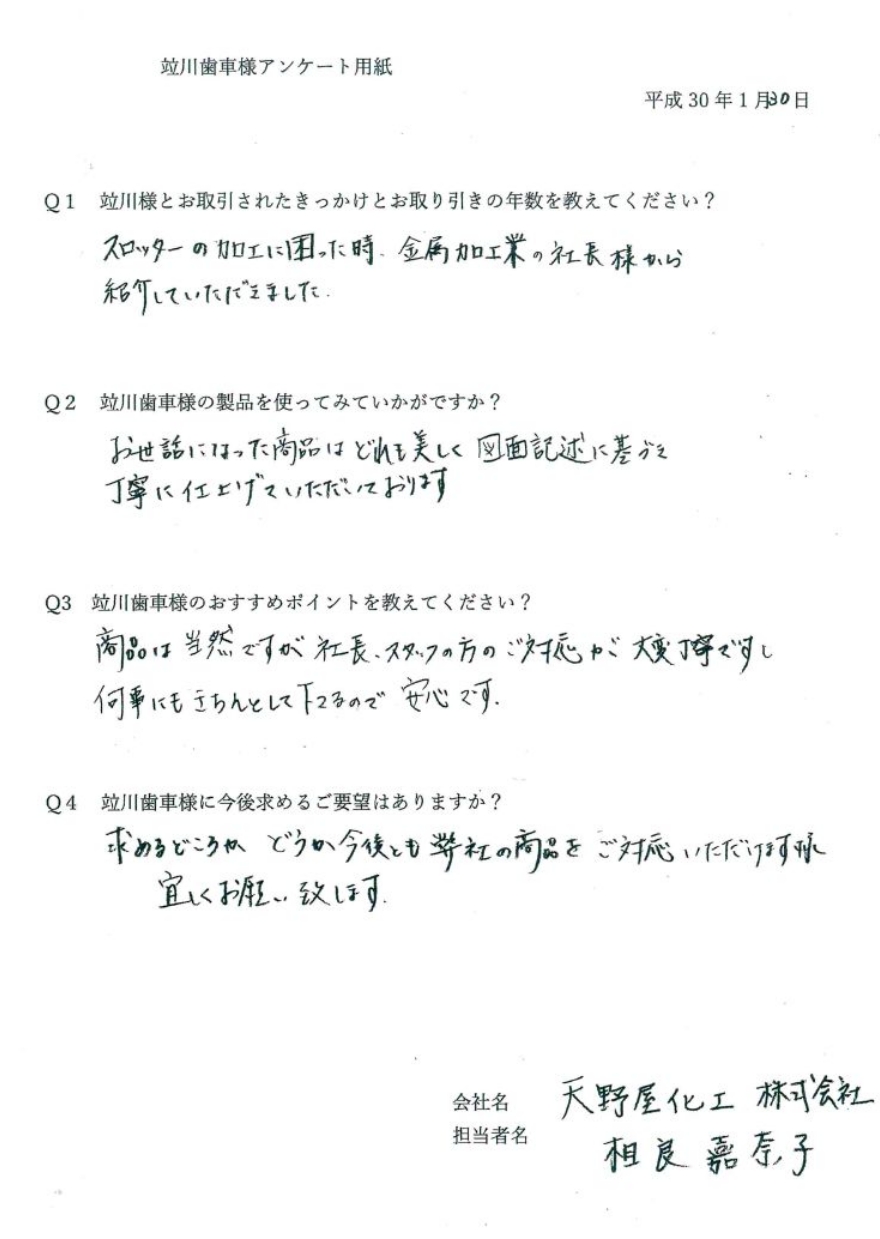 竝川歯車様アンケート用紙
平成 30 年 1 月30日
Q1 竝川様とお取引されたきっかけとお取り引きの年数を教えてください？
スロッターの加工に困った時、金属加工業の社長様から
紹介していただきました.
Q2 竝川歯車様の製品を使ってみていかがですか？
お世話になった商品はどれも美しく図面記述に基づき
丁寧に仕上げていただいております
Q3 竝川歯車様のおすすめポイントを教えてください？
商品は当然ですが社長、スタッフの方のご対応がご大変丁寧ですし
何事にもきちんとして下さるので安心です.
Q4 竝川歯車様に今後求めるご要望はありますか？
求めるどころか どうか今後とも弊社の商品をご対応いただけます様
宜しくお願い致します.
会社名 天野屋化工 株式会社
担当者名 相良 嘉奈子